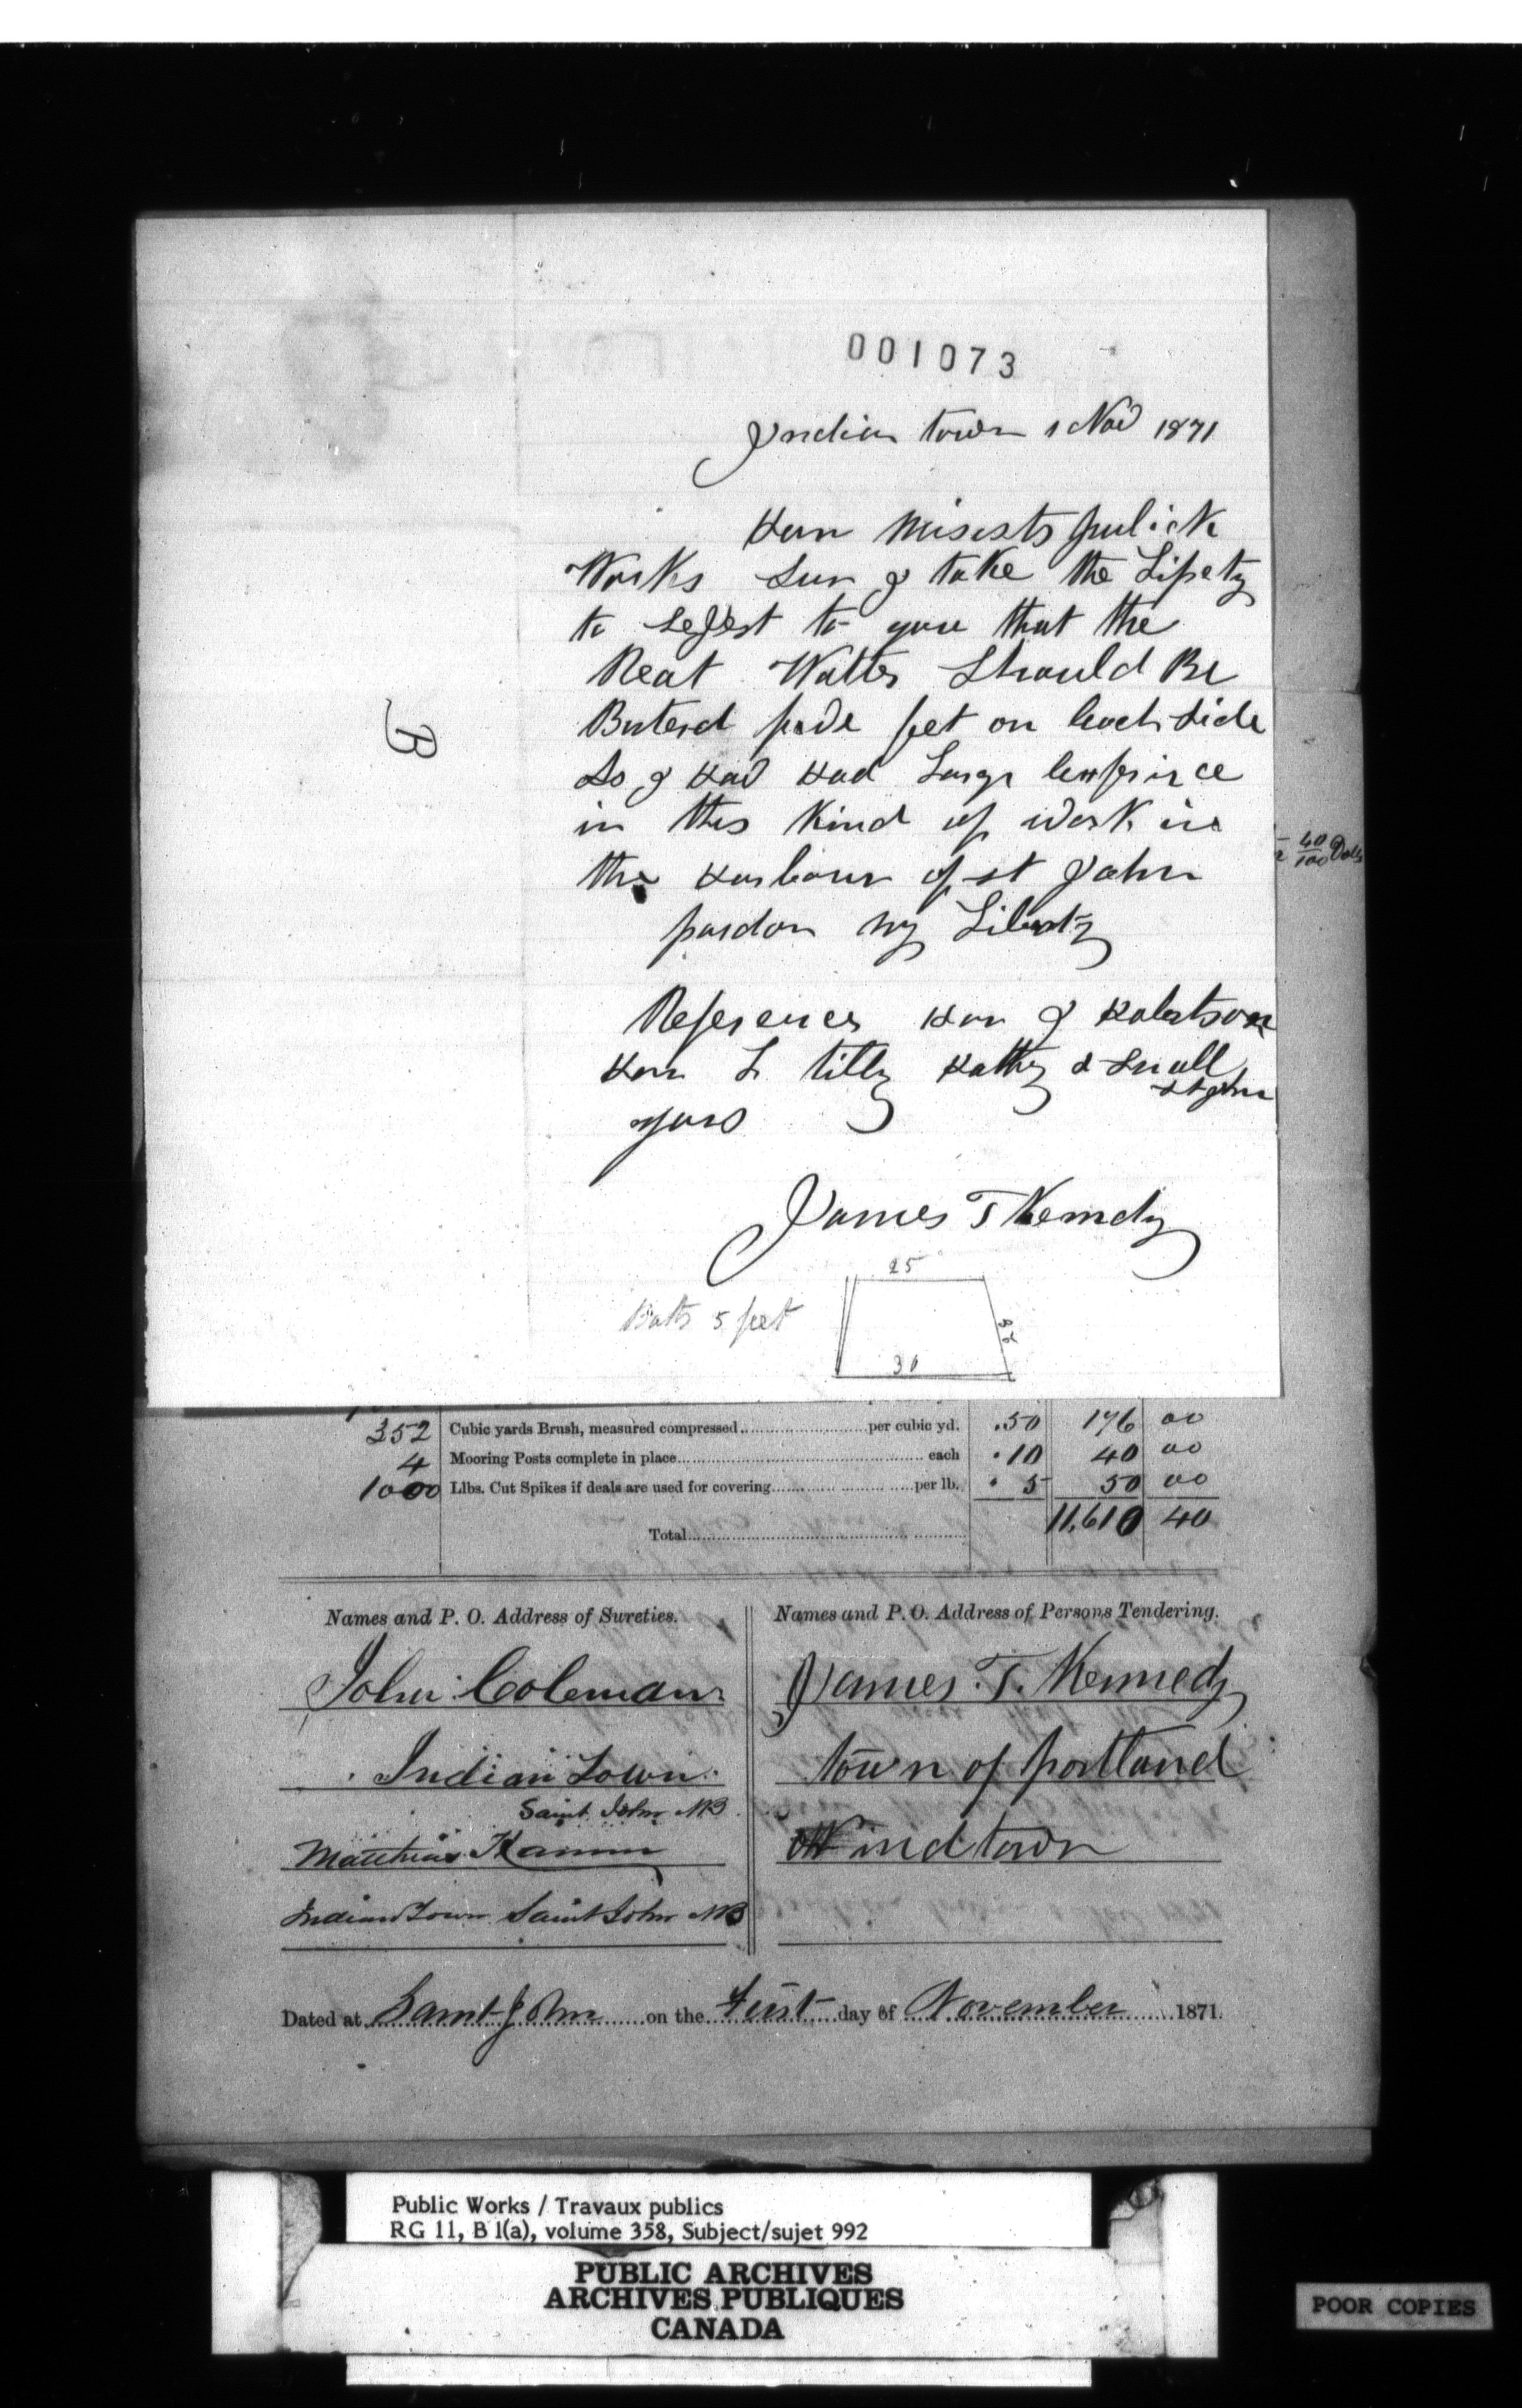 001073
Indian town 1 Nov 1871
Hon Misests publick
Works Sur I take the Lipety
to sejest to you that the
Reat Watter Should Be
Buterd five feet on each side
As I Hav Had Large
in this Kind of work in
the Harbour of st John
pardon my Liberty
References Hon J Robertson
Hon L tilly Hathy & Small
St John
yours
James T Kennedy
B
25
Bats 5 feet
30
40/100 Dolls
352 Cubic yards Brush, measured compressed per cubic yd. .50 176 00
4 Mooring Posts complete in place each .10 40 00
1000 Llbs. Cut Spikes if deals are used for covering per lb. . 5 50 00
Total 11,610 40
Names and P. O. Address of Sureties.
John Coleman
Indian Town
Saint John NB
Matthias Hamm
Indian Town Saint John NB
Names and P. O. Address of Persons Tendering.
James. T. Kennedy
town of portland
indtown
Dated at Saint John on the First day of November 1871.
Public Works / Travaux publics
RG 11, B 1(a), volume 358, Subject/sujet 992
PUBLIC ARCHIVES
ARCHIVES PUBLIQUES
CANADA
POOR COPIES